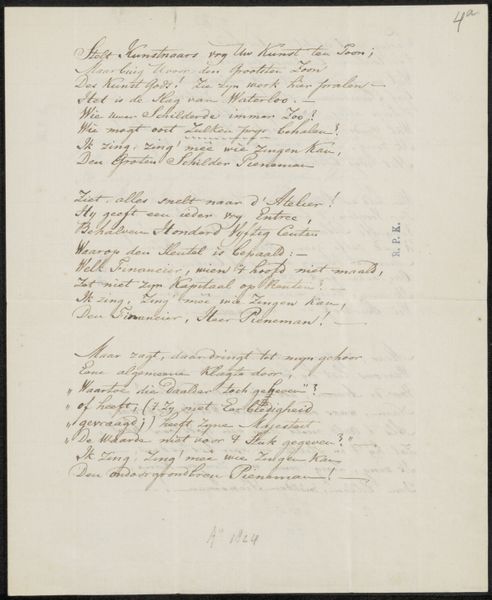 4a
Stelt Kunstnaars vrij Uw Kunst ten Toon;
Maar buig U voor den Grootsten Zoon
Des Kunst Gods! Zie zijn werk hier pralen –
Het is de Slag van Waterloo. –
Wie Schilderde immer Zoo?
Wie mogt ooit Zulken prijs behalen?
Ik zing: Zing' meê wie zingen kan,
Den Grooten Schilder Pieneman

Ziet alles snelt naar d'Atelier!
Hij geeft een ieder vrij Entree,
Behalven Honderd Vijftig Centen
Waarop den Sleutel is bepaald: –
Welk Financier, wien 't hoofd niet maald,
Zet niet zijn Kapitaal op Renten? –
Ik zing, Zing' meê wie Zingen kan,
Den Financier, Heer Pieneman! –

Maar zagt, daar dringt tot mijn gehoor
Eene algemeene Klagte door;
„Waartoe die Daalder toch gegeven"? –
„of heeft, ('t Zij met Eerbiedigheid
„gevraagd;) heeft Zijne Majesteit
„De Waarde niet voor 't Stuk gegeven?" –
Ik Zing, Zing' meê wie Zingen kan
Den ondoorgrondbren Pieneman! –
Ao 1824
R.P.K.